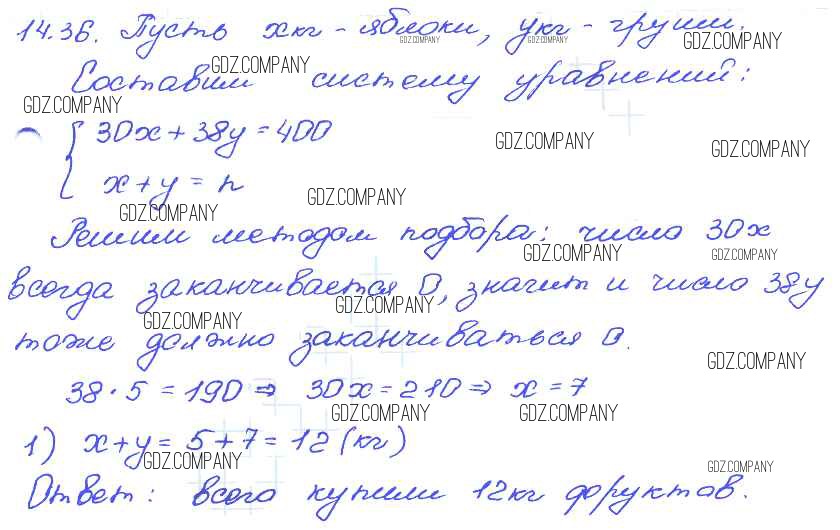 14.36. Пусть х кг - яблоки, у кг - груши.
GDZ.COMPANY GDZ.COMPANY GDZ.COMPANY
Составим систему уравнений:
GDZ.COMPANY
GDZ.COMPANY
30x + 38y = 400
GDZ.COMPANY GDZ.COMPANY
x + y = n
GDZ.COMPANY GDZ.COMPANY
Решим методом подбора: число 30x
GDZ.COMPANY GDZ.COMPANY
всегда заканчивается 0, значит и число 38y
GDZ.COMPANY GDZ.COMPANY
тоже должно заканчиваться 0.
GDZ.COMPANY
38 · 5 = 190 ⇒ 30x = 210 ⇒ x = 7
GDZ.COMPANY GDZ.COMPANY
1) x + y = 5 + 7 = 12 (кг)
GDZ.COMPANY GDZ.COMPANY
Ответ: всего купили 12 кг фруктов.